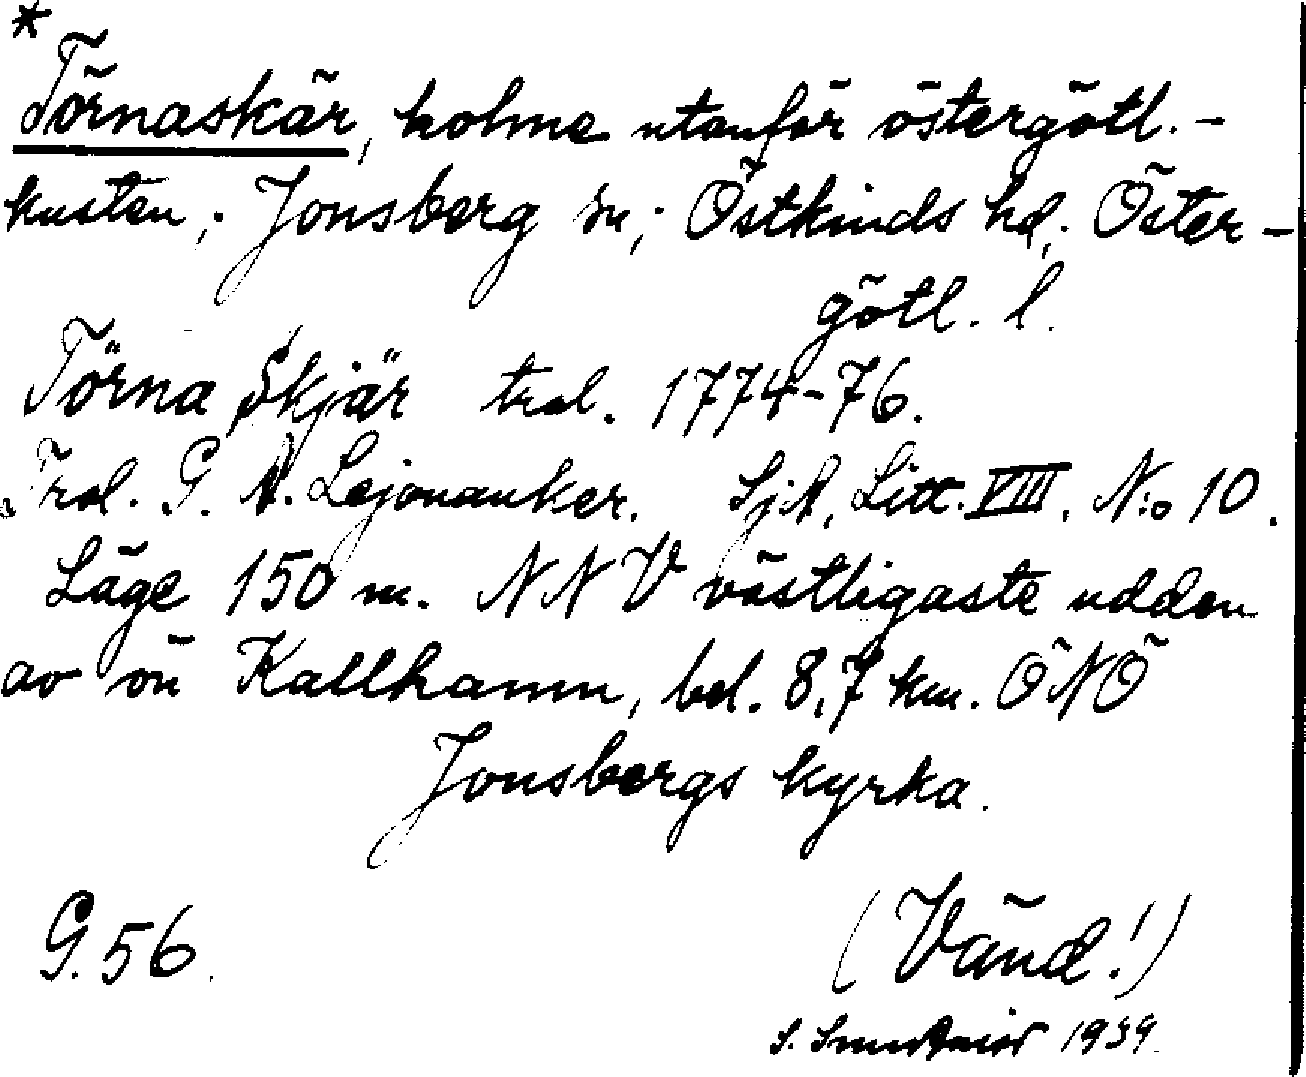 *
Törnaskär, holme utanför östergötl.-
kusten; Jonsberg sn; Östkinds hd; Öster-
götl. l.
Törna Skjär trol. 1774-76.
Trol. G. A. Lejonanker. SjA, Litt. VIII. N:o 10.
Läge 150 m. NNV västligaste udden
av ön Kallhamn, bel. 8,7 km. ÖNÖ
Jonsbergs kyrka.
G. 56.
(Vänd!)
S. 1939